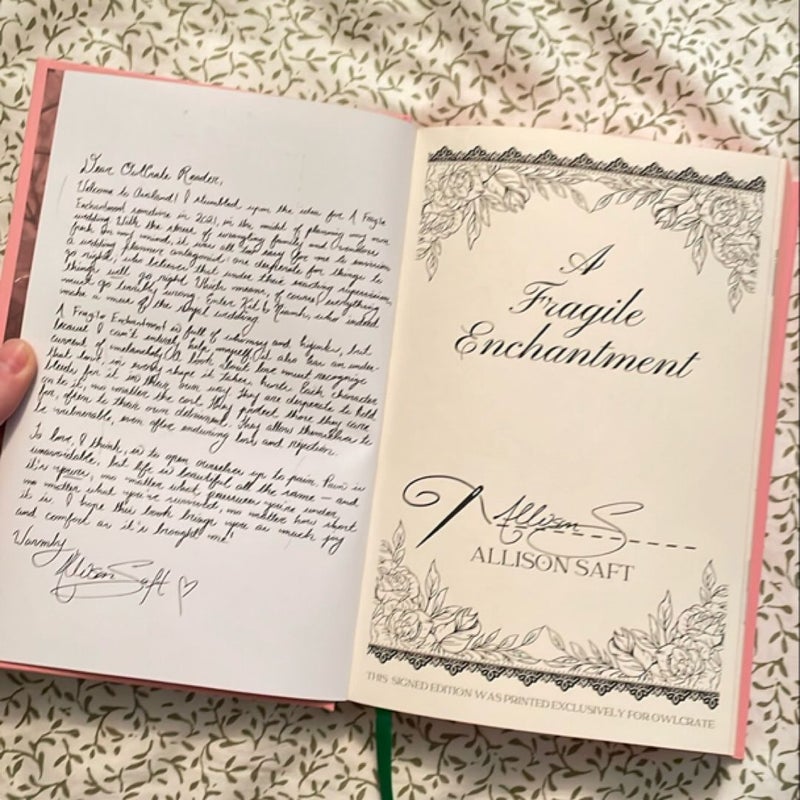 Dear OwlCrate Reader,
Welcome to Avaland! I stumbled upon the idea for A Fragile
Enchantment sometime in 2021, in the midst of planning my own
wedding. With the stress of wrangling family and vendors
fresh in my mind, it was all too easy for me to envision
a wedding planner antagonist: one desperate for things to
go right, who believes that under their exacting supervision,
things will go right. Which means, of course, everything
must go terribly wrong. Enter Kit & Niamh, who indeed
make a mess of the royal wedding.
A Fragile Enchantment is full of whimsy and hijinks, but
because I can't entirely help myself, it also has an under-
current of melancholy. A book about love must recognize
that love, in every shape it takes, hurts. Each character
bleeds for it in their own way. They are desperate to hold
on to it, no matter the cost. They protect those they care
for, often to their own detriment. They allow themselves to
be vulnerable, even after enduring loss and rejection.
To love, I think, is to open ourselves up to pain. Pain is
unavoidable, but life is beautiful all the same — and
it's yours, no matter what pressures you're under,
no matter what you've survived, no matter how short
it is. I hope this book brings you as much joy
and comfort as it's brought me.
Warmly,
Allison Saft
A
Fragile
Enchantment
Allison S
ALLISON SAFT
THIS SIGNED EDITION WAS PRINTED EXCLUSIVELY FOR OWLCRATE